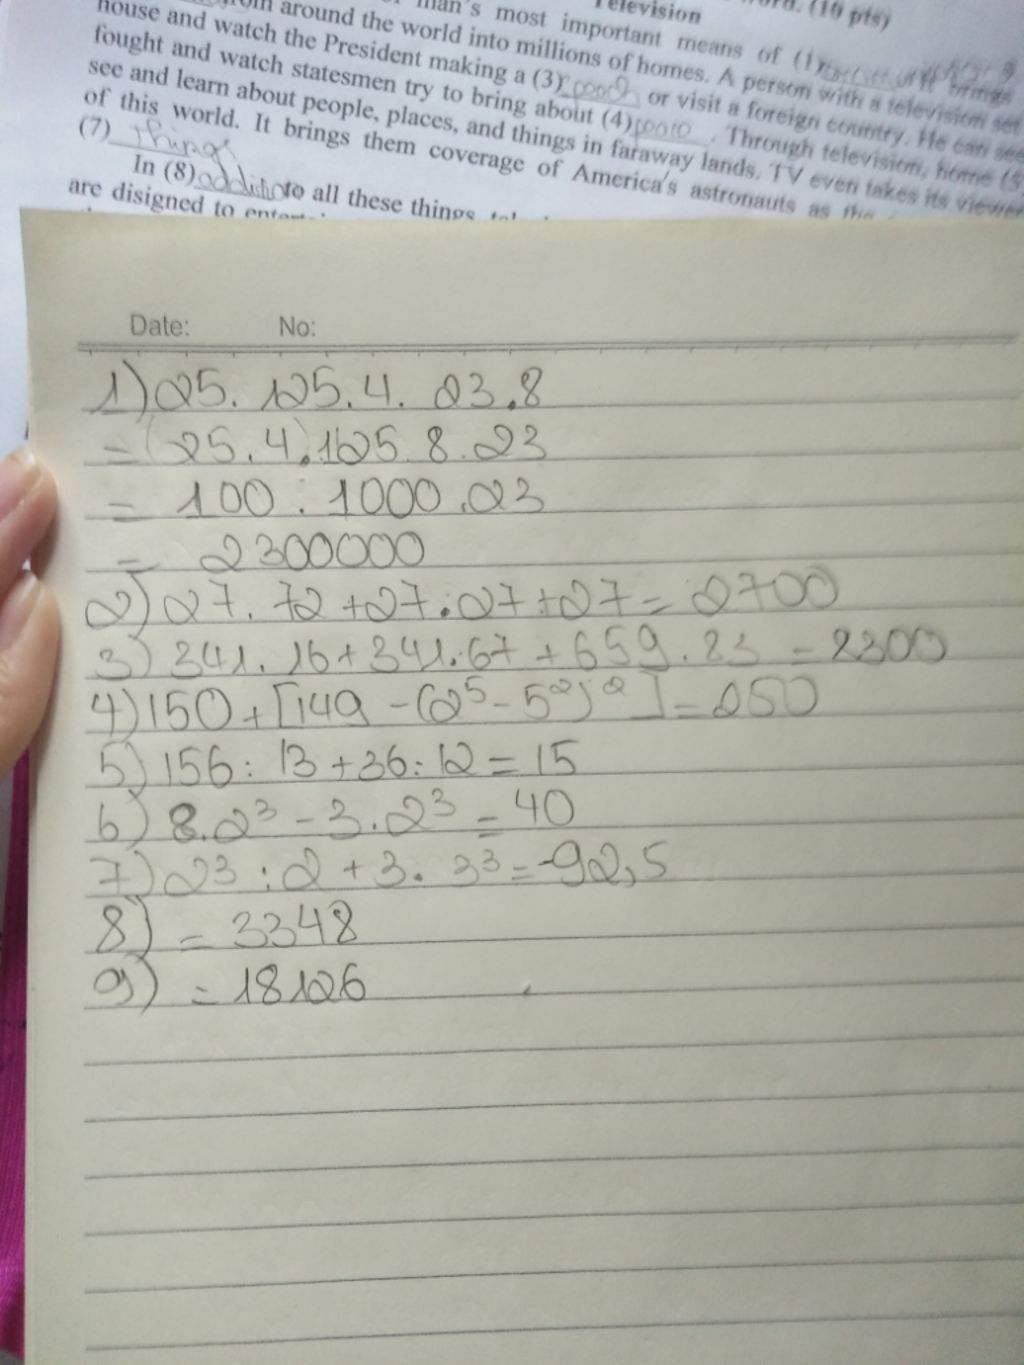 Television
word. (10 pts)
man's most important means of (1)
from around the world into millions of homes. A person with a television set
house and watch the President making a (3) or visit a foreign country. He can see
fought and watch statesmen try to bring about (4) . Through television, home (5
see and learn about people, places, and things in faraway lands. TV even takes its viewer
of this world. It brings them coverage of America's astronauts as the
(7) things
In (8) addition to all these things, tel
are disigned to entert
Date: No:
1) 25. 125.4. 23.8
= (25.4).125.8.23
= 100 . 1000.23
= 2300000
2) 27. 72 +27.27+27 = 2700
3) 341. 16+ 341.67 + 659. 83 = 8300
4) 150 + [149 - (2⁵ - 5²)²] = 250
5) 156 : 13 + 36 : 12 = 15
6) 8.2³ - 3.2³ = 40
7) 23 : 2 + 3. 3³ = 92,5
8) = 3348
9) = 18126